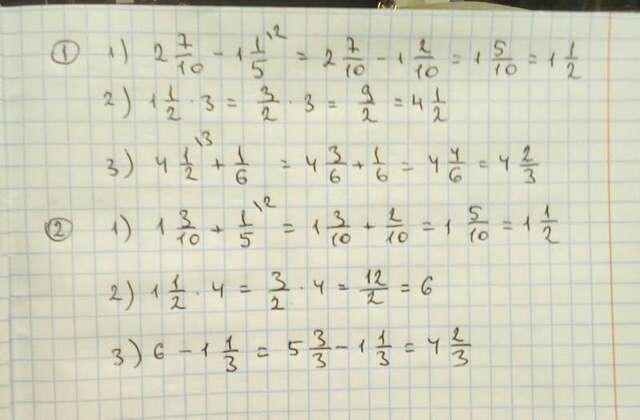 ① 1) 2 7/10 - 1 1/5 \2 = 2 7/10 - 1 2/10 = 1 5/10 = 1 1/2
2) 1 1/2 · 3 = 3/2 · 3 = 9/2 = 4 1/2
3) 4 1/2 \3 + 1/6 = 4 3/6 + 1/6 = 4 4/6 = 4 2/3
② 1) 1 3/10 + 1/5 \2 = 1 3/10 + 2/10 = 1 5/10 = 1 1/2
2) 1 1/2 · 4 = 3/2 · 4 = 12/2 = 6
3) 6 - 1 1/3 = 5 3/3 - 1 1/3 = 4 2/3